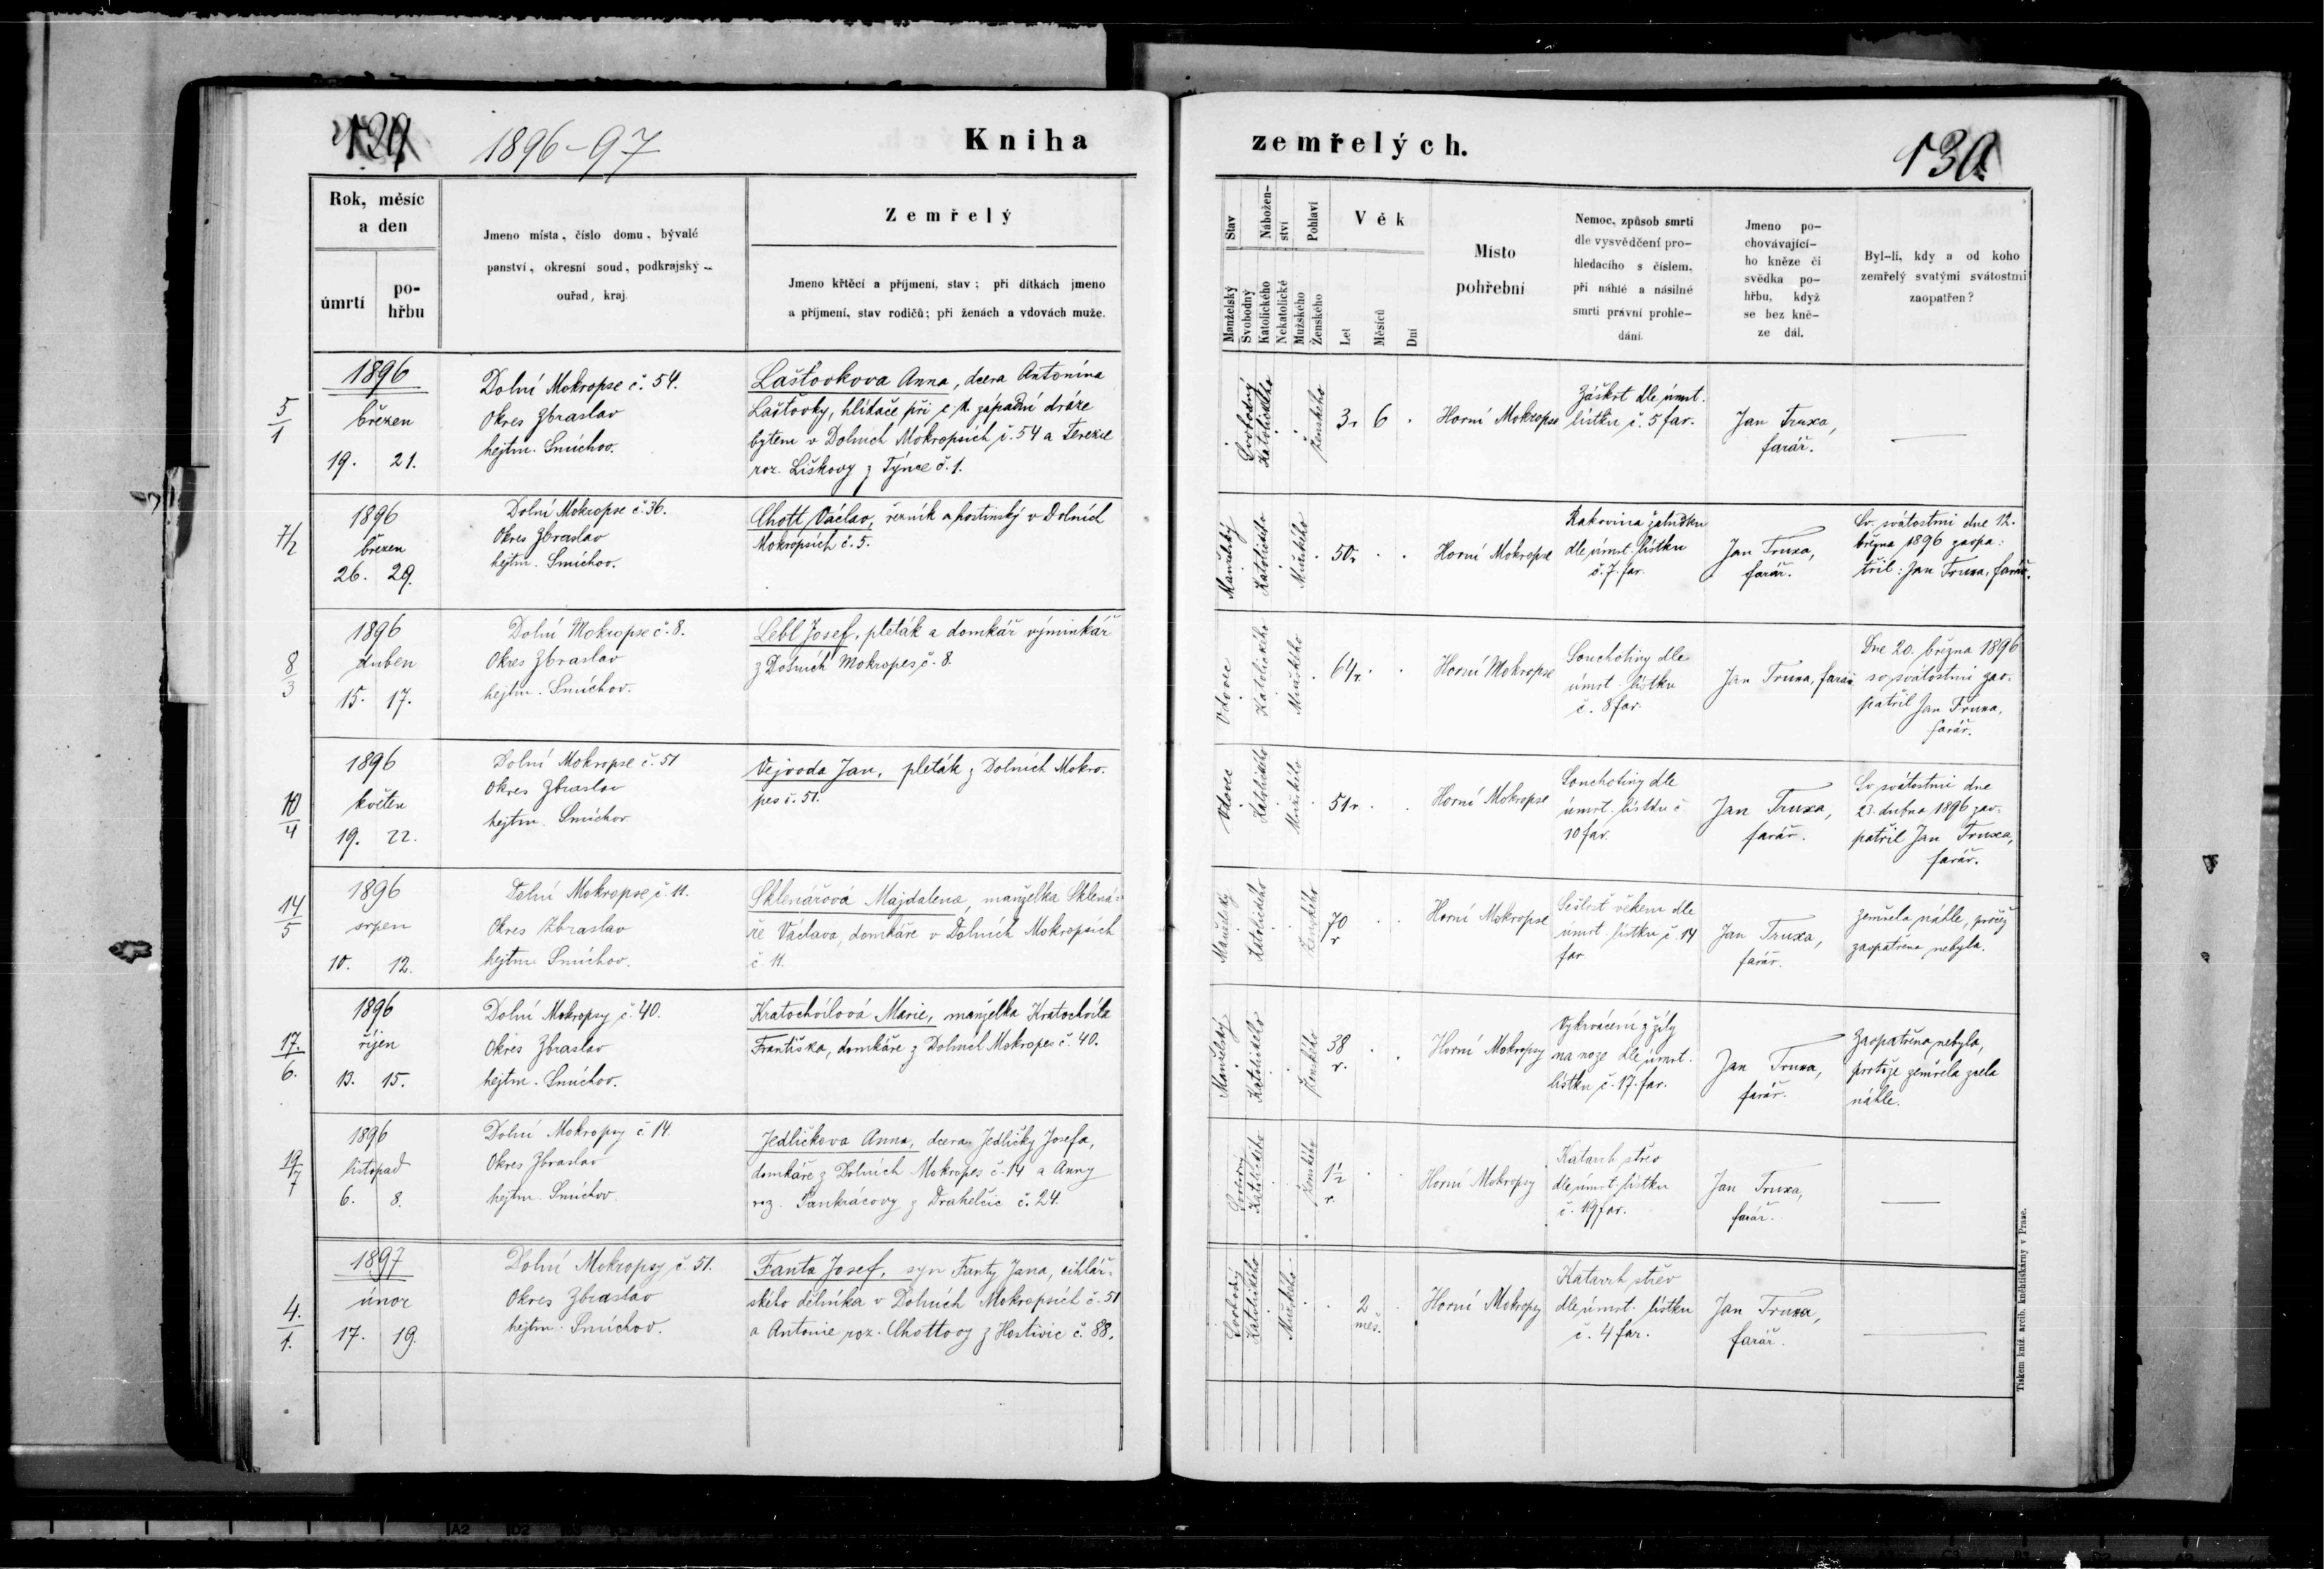 129
1896-97
Kniha
zemřelých.
130.
Rok, měsíc
a den
úmrtí
po-
hřbu
Jmeno místa, číslo domu, bývalé
panství, okresní soud, podkrajský
ouřad, kraj.
Zemřelý
Jmeno křtěcí a příjmení, stav; při dítkách jmeno
a příjmení, stav rodičů; při ženách a vdovách muže.
Stav
Manželský
Svobodný
Nábožen-
ství
Katolického
Nekatolické
Pohlaví
Mužského
Ženského
Věk
Let
Měsíců
Dní
Místo
pohřební
Nemoc, způsob smrti
dle vysvědčení pro-
hledacího s číslem,
při náhlé a násilné
smrti právní prohle-
dání.
Jmeno po-
chovávající-
ho kněze či
svědka po-
hřbu, když
se bez kně-
ze dál.
Byl-li, kdy a od koho
zemřelý svatými svátostmi
zaopatřen?
5/1
1896
březen
19. 21.
Dolní Mokropse č. 54.
Okres Zbraslav
hejtm. Smíchov.
Laštovkova Anna, dcera Antonína
Laštovky, hlídače při c. k. západní dráze
bytem v Dolních Mokropsích č. 54 a Terezie
roz. Liškovy z Týnce č. 1.
Svobodný
Katolického
Ženského
3r 6
Horní Mokropse
Záškrt dle úmrt.
lístku č. 5 far.
Jan Truxa,
farář.
7/2
1896
březen
26. 29.
Dolní Mokropse č. 36.
Okres Zbraslav
hejtm. Smíchov.
Chott Václav, řezník a hostinský v Dolních
Mokropsích č. 5.
Manželský
Katolického
Mužského
50r
Horní Mokropse
Rakovina žaludku
dle úmrt. lístku
č. 7. far.
Jan Truxa,
farář.
Sv. svátostmi dne 12.
března 1896 zaopa:
třil: Jan Truxa, farář.
8/3
1896
duben
15. 17.
Dolní Mokropse č. 8.
Okres Zbraslav
hejtm. Smíchov.
Lebl Josef, pleták a domkář výminkář
z Dolních Mokropes č. 8.
Vdovec
Katolického
Mužského
64r
Horní Mokropse
Souchotiny dle
úmrt. lístku
č. 8 far.
Jan Truxa, farář
Dne 20. března 1896
sv. svátostmi zao-
patřil Jan Truxa,
farář.
10/4
1896
květen
19. 22.
Dolní Mokropse č. 51
Okres Zbraslav
hejtm. Smíchov
Vejvoda Jan, pleták z Dolních Mokro-
pes č. 51.
Vdovec
Katolického
Mužského
51r
Horní Mokropse
Souchotiny dle
úmrt. lístku č.
10 far.
Jan Truxa,
farář.
Sv. svátostmi dne
23. dubna 1896 zao-
patřil Jan Truxa,
farář.
14/5
1896
srpen
10. 12.
Dolní Mokropse č. 11.
Okres Zbraslav
hejtm. Smíchov.
Sklenářová Majdalena, manželka Sklená-
ře Václava, domkáře v Dolních Mokropsích
č. 11.
Manželský
Katolického
Ženského
70
r
Horní Mokropse
Sešlost věkem dle
úmrt. lístku č. 14
far.
Jan Truxa,
farář.
Zemřela náhle, pročež
zaopatřena nebyla.
17./6.
1896
říjen
13. 15.
Dolní Mokropsy č. 40.
Okres Zbraslav
hejtm. Smíchov.
Kratochvílová Marie, manželka Kratochvíla
Františka, domkáře z Dolních Mokropes č. 40.
Manželský
Katolického
Ženského
38
r.
Horní Mokropsy
Vykrvácení z žíly
na noze dle úmrt.
lístku č. 17. far.
Jan Truxa,
farář.
Zaopatřena nebyla,
protože zemřela zcela
náhle.
19/7
1896
listopad
6. 8.
Dolní Mokropsy č. 14.
Okres Zbraslav
hejtm. Smíchov
Jedličkova Anna, dcera Jedličky Josefa,
domkáře z Dolních Mokropes č. 14 a Anny
roz. Pankrácovy z Drahelčic č. 24.
Svobodný
Katolického
Ženského
1½
r.
Horní Mokropsy
Katarrh střev
dle úmrt. lístku
č. 19 far.
Jan Truxa,
farář.
4./1.
1897
únor
17. 19.
Dolní Mokropsy č. 51.
Okres Zbraslav
hejtm. Smíchov.
Fanta Josef, syn Fanty Jana, cihlář-
ského dělníka v Dolních Mokropsích č. 51
a Antonie roz. Chottovy z Hostivic č. 88.
Svobodný
Katolického
Mužského
2
měs.
Horní Mokropsy
Katarrh střev
dle úmrt. lístku
č. 4 far.
Jan Truxa,
farář.
Tiskem kníž. arcib. knihtiskárny v Praze.